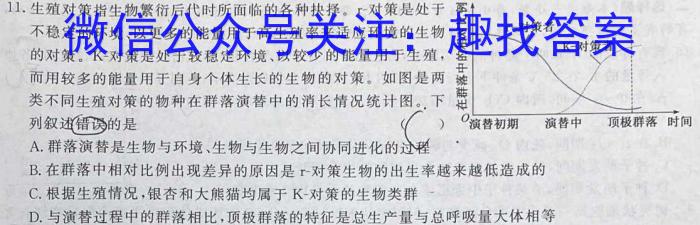 11.生殖对策指生物繁衍后代时所面临的各种抉择。r-对策是处于
不稳定的环境,以更多的能量用于高生殖率来适应环境的生物
的对策。K-对策是处于较稳定环境、以较少的能量用于生殖,
而用较多的能量用于自身个体生长的生物的对策。如图是两
类不同生殖对策的物种在群落演替中的消长情况统计图。下
列叙述错误的是 ( )
微信公众号关注:趣找答案
在群落中的
K-对策
O 演替初期 演替中 顶极群落 时间
A.群落演替是生物与环境、生物与生物之间协同进化的过程
B.在群落中相对比例出现差异的原因是 r-对策生物的出生率越来越低造成的
C.根据生殖情况,银杏和大熊猫均属于 K-对策的生物类群
D.与演替过程中的群落相比,顶极群落的特征是总生产量与总呼吸量大体相等